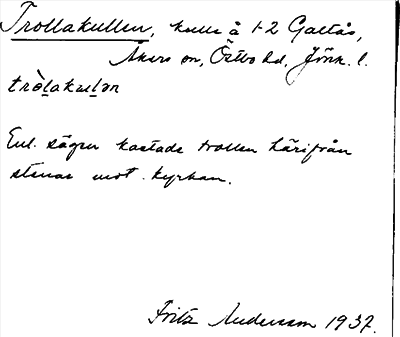 Trollakullen, kulle å 1-2 Galtås,
Åkers sn, Östbo hd, Jönk. l.
tròl̠akul̠ən
Enl. sägen kastade trollen härifrån
stenar mot kyrkan.
Fritz Andersson 1937.